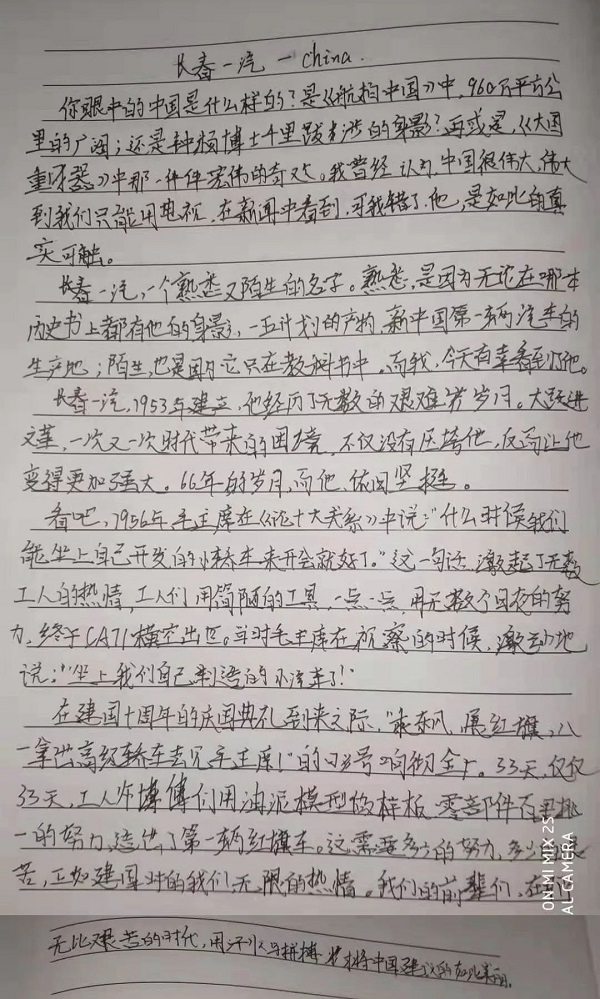 长春一汽 — china.
你眼中的中国是什么样的？是《航拍中国》中，960万平方公
里的广阔；还是钟扬博士千里跋涉的身影？再或是，《大国
重器》中那一件件宏伟的奇迹。我曾经认为，中国很伟大，伟大
到我们只能用电视，在新闻中看到，可我错了，他，是如此的真
实可触。
长春一汽，一个熟悉又陌生的名字。熟悉，是因为无论在哪本
历史书上都有他的身影，一五计划的产物，新中国第一辆汽车的
生产地；陌生，也是因为它只在教科书中。而我，今天有幸看到了他。
长春一汽，1953年建立，他经历了无数的艰难岁月。大跃进
文革，一次又一次时代带来的困境，不仅没有压垮他，反而让他
变得更加强大。66年的岁月，而他，依旧坚挺。
看吧，1956年，毛主席在《论十大关系》中说："什么时候我们
能坐上自己开发的小轿车来开会就好了。"这一句话，激起了无数
工人的热情，工人们用简陋的工具，一点一点，用无数个日夜的努
力，终于CA71横空出世。当时毛主席在视察的时候，激动地
说："坐上我们自己制造的小汽车了！"
在建国十周年的庆国典礼到来之际，"乘东风，展红旗，
一拿出高级轿车去见毛主席！"的口号响彻全厂。33天，仅仅
33天，工人师傅们用油泥模型做样板，零部件百里挑
一的努力，造出了第一辆红旗车。这需要多少的努力，多少
苦，正如建国时的我们无限的热情。我们的前辈们，在
无比艰苦的时代，用汗水与拼搏才将中国建设的如此美丽。
ON MI MIX 2S
AI CAMERA